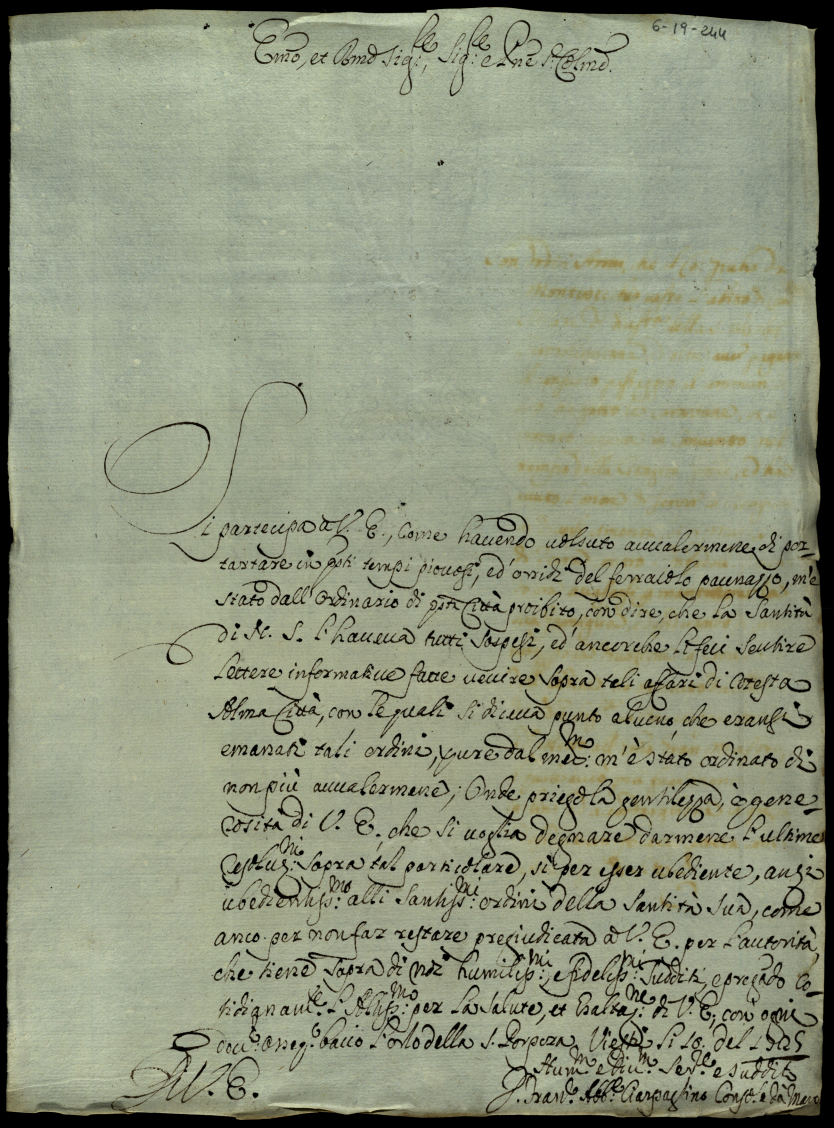 6-19-244
Emo, et Rmo Sig:re, Sig:re e Pne Colmo.
Si partecipa a V. E., come havendo volsuto avvalermene di por-
tartare in qsti tempi piovosi, ed' orridi del ferraiolo paunazzo, m'è
stato dall'Ordinario di qsta Città proibito, con dire, che la Santità
di N. S. l'haveva tutti sospesi, ed' ancorche li feci sentire
lettere informative fatte venire sopra tali affari di cotesta
Alma Città, con le quali si diceva punto alveno che eransi
emanati tali ordini, pure dal med:mo m'è stato ordinato di
non più avvalermene; Onde priego la gentilezza, e gene-
rosità di V. E. che si voglia degnare darmene l'ultime
resoluz:ni sopra tal particolare, si per esser ubediente, anzi
ubedientiss:mo alli Santiss:mi ordini della Santità Sua, come
anco per non far restare pregiudicata a V. E. per l'autorità,
che tiene sopra di noi humiliss:mi, e fideliss:mi sudditi, e pregando co-
tidianam:te l'Altiss:mo per la salute, et Esaltaz:ne di V. E, con ogni
bacio l'orlo della S. Porpora. Viesti li 10. del 1725
Hum:mo e Div:mo Ser:re e suddito
A V. E.